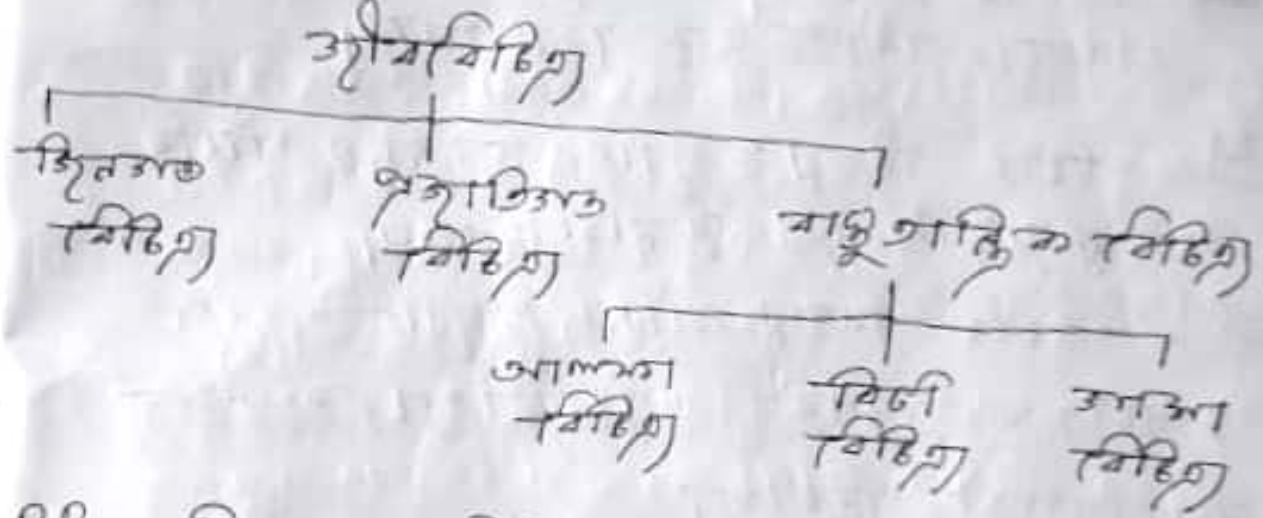 জীববিচিত্র্য
জিনগত
বিচিত্র্য
প্রজাতিগত
বিচিত্র্য
বাস্তুতান্ত্রিক বিচিত্র্য
আলফা
বিচিত্র্য
বিটা
বিচিত্র্য
গামা
বিচিত্র্য